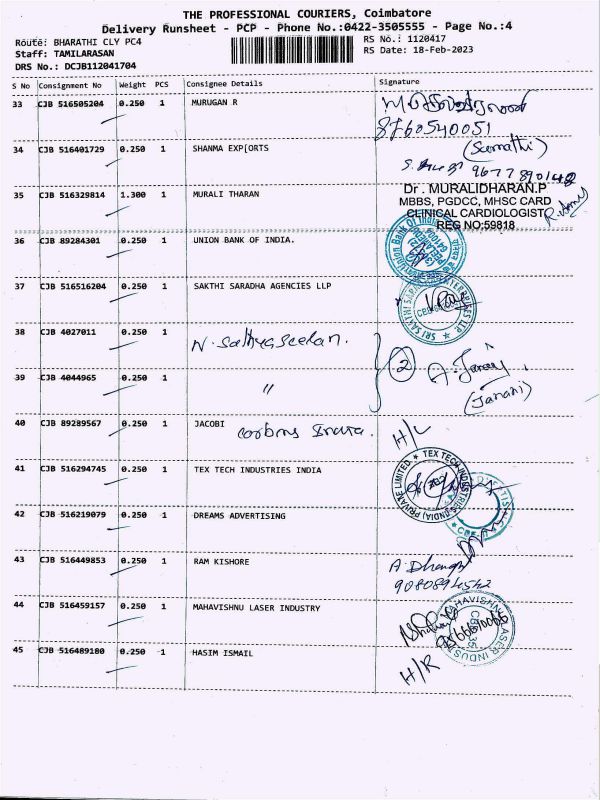 THE PROFESSIONAL COURIERS, Coimbatore
Delivery Runsheet - PCP - Phone No.:0422-3505555 - Page No.:4
Route: BHARATHI CLY PC4
RS No.: 1120417
Staff: TAMILARASAN
RS Date: 18-Feb-2023
DRS No.: DCJB112041704
S No Consignment No Weight PCS Consignee Details Signature
33 CJB 516505204 0.250 1 MURUGAN R
8760540051
34 CJB 516401729 0.250 1 SHANMA EXP[ORTS
(Sumathi)
9677890142
35 CJB 516329814 1.300 1 MURALI THARAN
Dr. MURALIDHARAN.P
MBBS, PGDCC, MHSC CARD
CLINICAL CARDIOLOGIST
REG NO:59818
36 CJB 89284301 0.250 1 UNION BANK OF INDIA.
Union Bank Of India
37 CJB 516516204 0.250 1 SAKTHI SARADHA AGENCIES LLP
SRI SAKTHI SARADHA ENTERPRISES LLP
38 CJB 4027011 0.250 1 N. Sathyaseelan.
2
39 CJB 4044965 0.250 1 "
(Janani)
40 CJB 89289567 0.250 1 JACOBI carbons India.
H/L
41 CJB 516294745 0.250 1 TEX TECH INDUSTRIES INDIA
TEX TECH INDUSTRIES (INDIA) PRIVATE LIMITED
42 CJB 516219079 0.250 1 DREAMS ADVERTISING
43 CJB 516449853 0.250 1 RAM KISHORE
9080894542
44 CJB 516459157 0.250 1 MAHAVISHNU LASER INDUSTRY
MAHAVISHNU LASER INDUS
45 CJB 516489180 0.250 1 HASIM ISMAIL
H/R